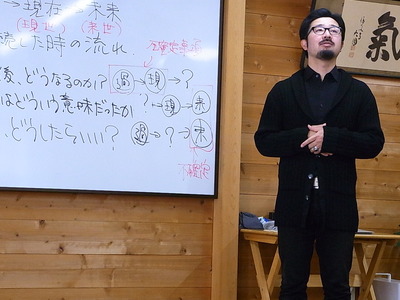 →現在→未来
(現世) (来世)
続した時の流れ
後、どうなるのか? 過→現→?
はどういう意味だったか ?→現→来
、どうしたらいい? 過→?→来
氣